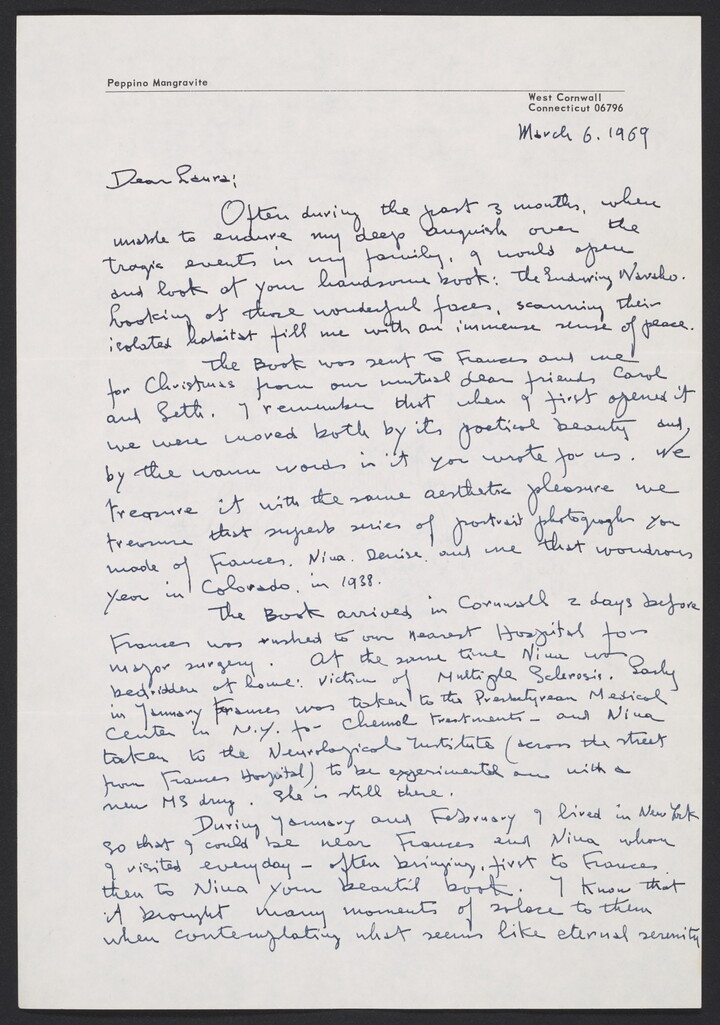 Peppino Mangravite
West Cornwall
Connecticut 06796
March 6. 1969
Dear Laura;
Often during the past 3 months, when
unable to endure my deep anguish over the
tragic events in my family, I would open
and look at your handsome book: The Enduring Navaho.
Looking at those wonderful faces, scanning their
isolated habitat fill me with an immense sense of peace.
The Book was sent to Frances and me
for Christmas from our mutual dear friends Carol
and Seth. I remember that when I first opened it
we were moved both by its poetical beauty and,
by the warm words in it you wrote for us. We
treasure it with the same aesthetic pleasure we
treasure that superb series of portrait photographs you
made of Frances, Nina, Denise, and me that wondrous
year in Colorado, in 1938.
The Book arrived in Cornwall 2 days before
Frances was rushed to our nearest Hospital for
major surgery. At the same time Nina was
bedridden at home: victim of Multiple Sclerosis. Early
in January Frances was taken to the Presbyterean Medical
Center in N.Y. for Chemol treatments – and Nina
taken to the Neurological Institute (across the street
from Frances Hospital) to be experimented on with a
new MS drug. She is still there.
During January and February I lived in New York
so that I could be near Frances and Nina whom
I visited everyday – often bringing, first to Frances
then to Nina your beautil book. I know that
it brought many moments of solace to them
when contemplating what seems like eternal serenity